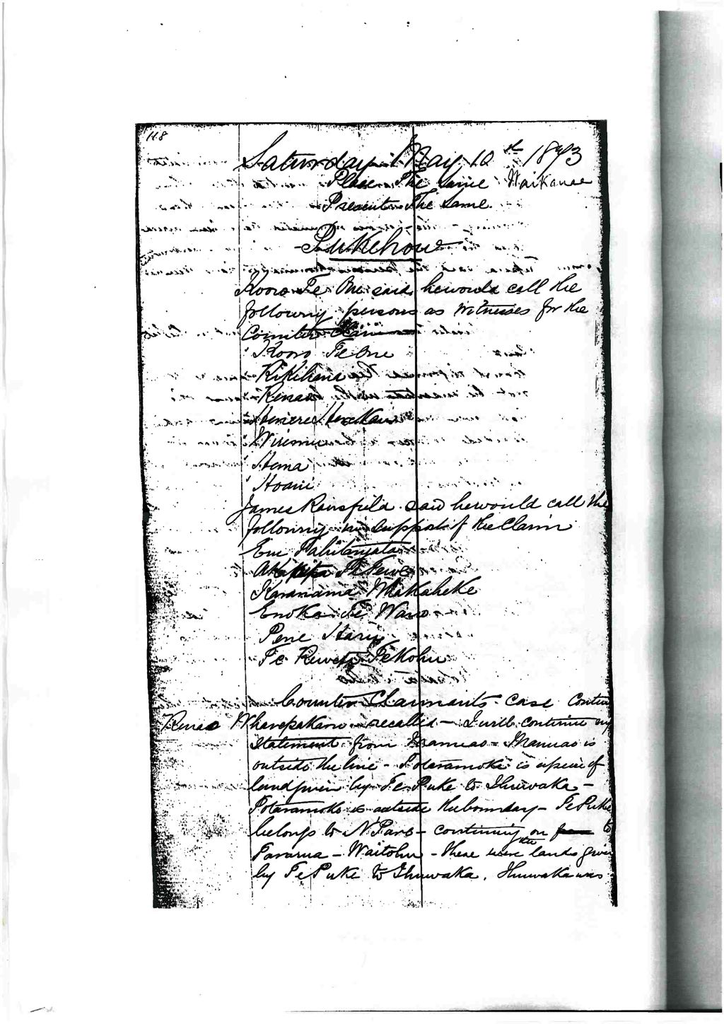 118
Saturday May 10th 1873
Place The Same Waikanae
Present The Same
Pukehou
Kooro Te One said he would call the
following persons as Witnesses for the
Counter Claim
Kooro Te One
Rikihana
Renao
Wiremu
Hema
Hoani
James Ransfield said he would call the
following in support of the Claim
Karanama Whakaheke
Enoka Te Wano
Pene
Te Rewe Te Kohu
Counter Claimants case
Wharepakaru recalled – I will continue my
Statement from Manuao – Manuao is
outside the line – Potaramoke is a piece of
land given by Te Puke to Ihuwaka –
Potaramoke is outside the boundary – Te Puke
belongs to N. Pare – continuing on to
Pararua – Waitohu – these were the lands given
by Te Puke to Ihuwaka. Ihuwaka was